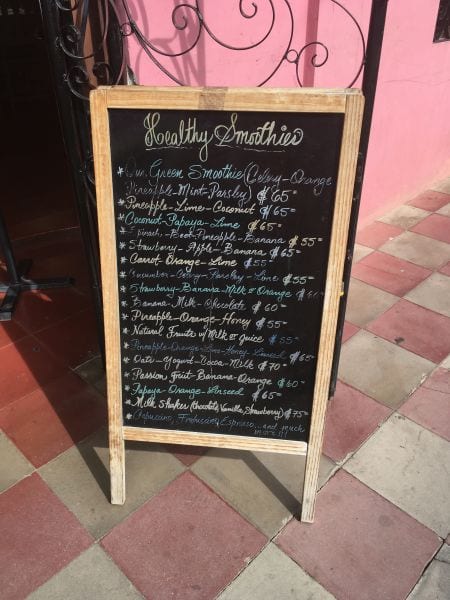 Healthy Smoothies
* Our Green Smoothie (Celery-Orange
Pineapple-Mint-Parsley) ₡65
* Pineapple-Lime-Coconut ₡65
* Coconut-Papaya-Lime ₡65
* Spinach-Beet-Pineapple-Banana ₡55
* Strawberry-Apple-Banana ₡65
* Carrot Orange-Lime ₡55
* Cucumber-Celery-Parsley-Lime ₡55
* Strawberry-Banana-Milk or Orange
* Banana-Milk-Chocolate ₡60
* Pineapple-Orange-Honey ₡55
* Natural Fruits w/ Milk or Juice ₡55
* Pineapple-Orange-Lime-Honey-Linseed ₡65
* Oats-Yogurt-Cocoa-Milk ₡70
* Passion Fruit-Banana-Orange ₡60
* Papaya-Orange-Linseed ₡65
* Milk Shakes (Chocolate, Vanilla, Strawberry) ₡75
* Espresso...and much
more!!